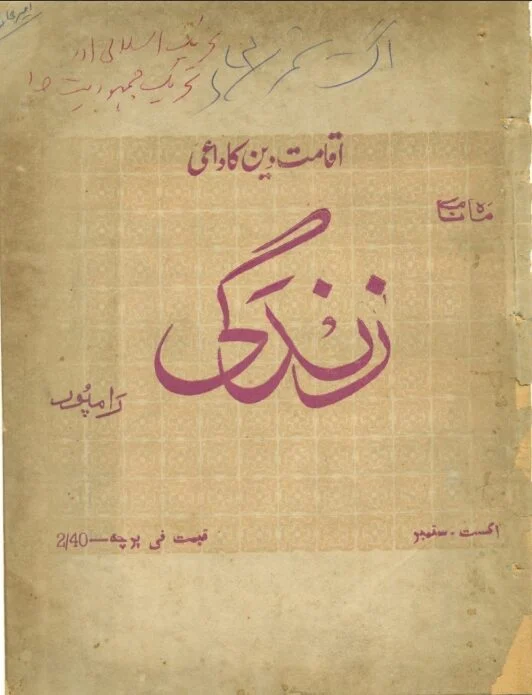 اگست ستمبر
تحریک اسلامی اور
تحریک جمہوریت
اقامت دین کا داعی
ماہنامہ
زندگی
رامپور
اگست - ستمبر
قیمت فی پرچہ — 2/40